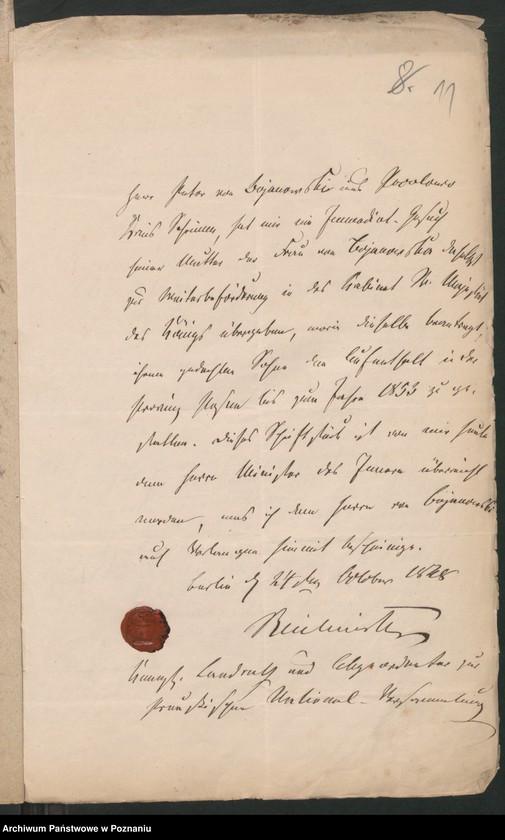 8. 11
Herr Peter von Bojanowski aus
Kreis Schrimm, hat mir ein Immediat-Gesuch
seiner Mutter der Frau von Bojanowska daselbst
zur Weiterbeförderung in das Kabinet Sr. Majestät
des Königs übergeben, worin dieselbe beantragt,
ihrem gedachten Sohne den Aufenthalt in der
Provinz Posen bis zum Jahre 1853 zu ge-
statten. Dieses Schriftstück ist von mir heute
dem Herrn Minister des Innern überreicht
worden, was ich dem Herrn von Bojanowski
auf Verlangen hiermit bescheinige.
Berlin d 24 October 1848
Königl. Landrath und Abgeordneter zur
Preußischen National-Versammlung
Archiwum Państwowe w Poznaniu